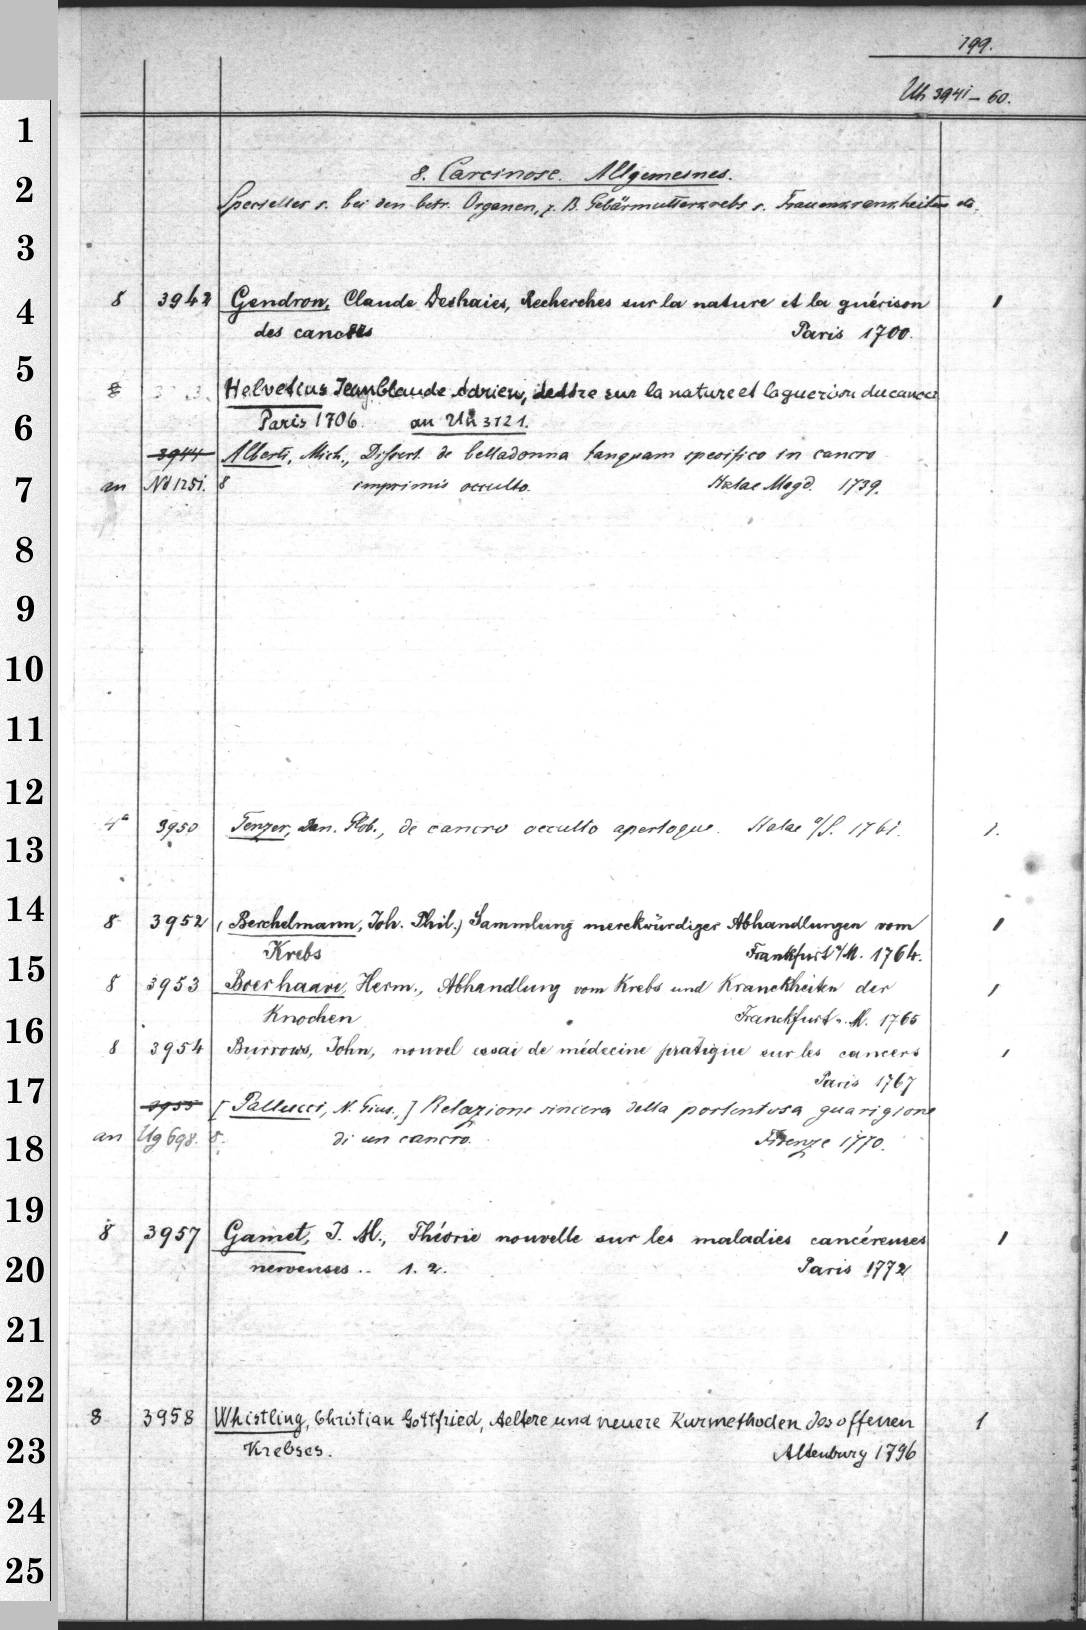 199.
Uh 3941-60.
8. Carcinose. Allgemeines.
Specielles s. bei den betr. Organen, z. B. Gebärmutterkrebs s. Frauenkrankheiten etc.
8 3942 Gendron, Claude Deshaies, Recherches sur la nature et la guérison 1
des cancers Paris 1700.
8 Helvetius Jean Claude Adrien, Lettre sur la nature et la guerison du cancer
Paris 1706. an Uh 3121.
3944 Alberti, Mich., Dissert. de belladonna tanquam specifico in cancro
an Nd 1251. 8 imprimis occulto. Halae Magd. 1739.
4° 3950 Tenzer, Dan. Glob., de cancro occulto apertoque. Halae a/S. 1761. 1.
8 3952 (Berchelmann, Joh. Phil.) Sammlung merckwürdiger Abhandlungen vom 1
Krebs Frankfurt a/M. 1764.
8 3953 Boerhaave, Herm., Abhandlung vom Krebs und Kranckheiten der 1
Knochen Franckfurt a. M. 1765
8 3954 Burrows, John, nouvel essai de médecine pratique sur les cancers 1
Paris 1767
3955 [Pallucci, N. Gius.,] Relazione sincera della portentosa guarigione
an Ug 698. 8. di un cancro. Firenze 1770.
8 3957 Gamet, J. M., Théorie nouvelle sur les maladies cancéreuses 1
nerveuses .. 1. 2. Paris 1772
8 3958 Whistling, Christian Gottfried, Aeltere und neuere Kurmethoden des offenen 1
Krebses. Altenburg 1796
1
2
3
4
5
6
7
8
9
10
11
12
13
14
15
16
17
18
19
20
21
22
23
24
25